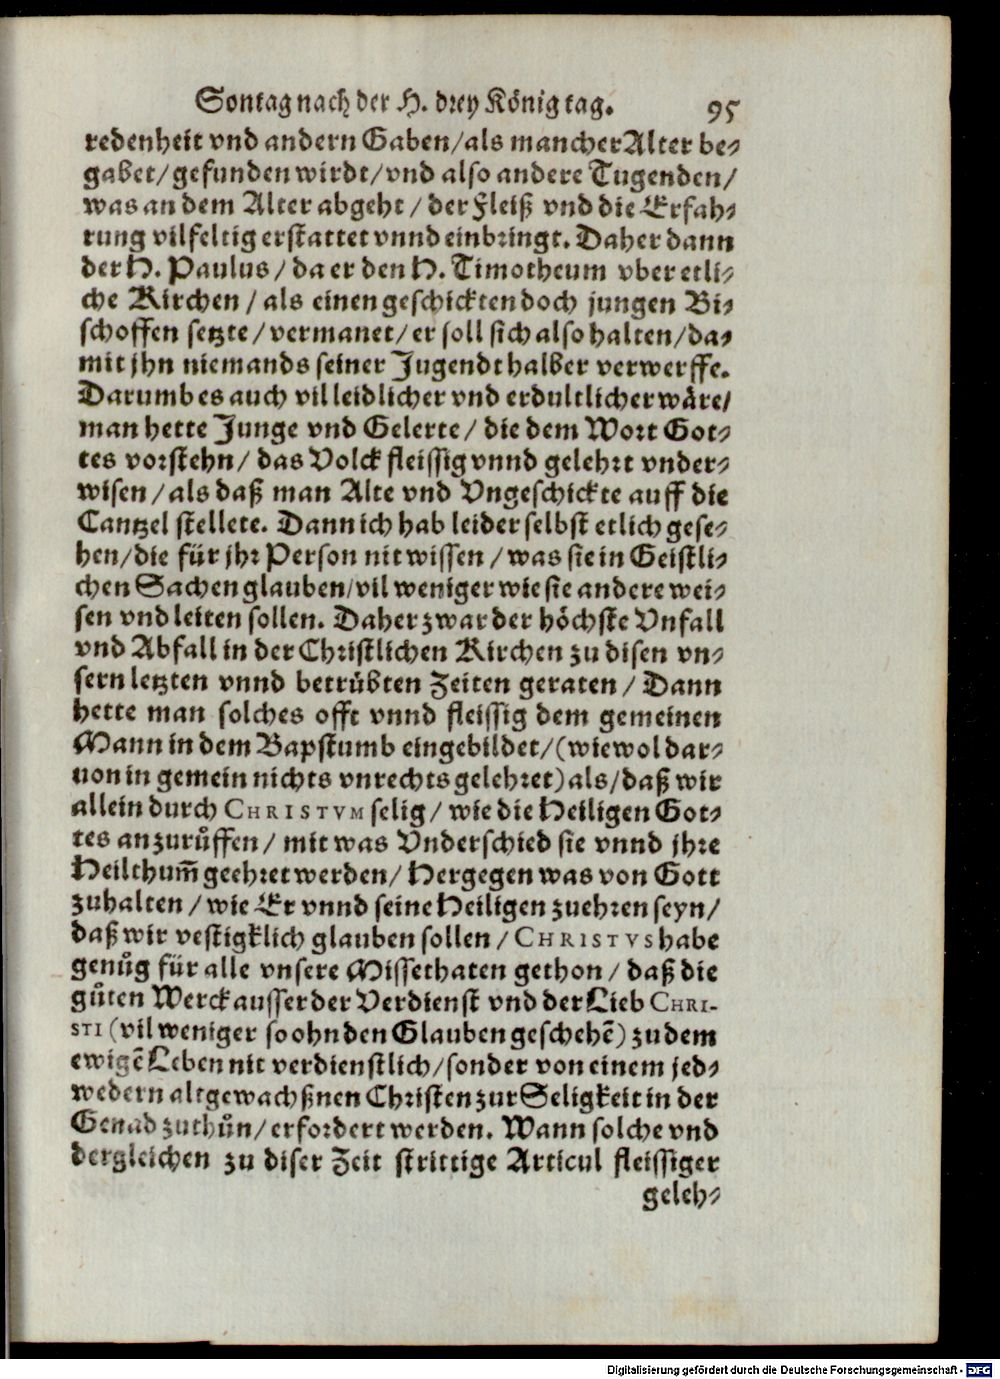 Sontag nach der H. drey König tag. 95
redenheit vnd andern Gaben/als mancher Alter be⸗
gabet/gefunden wirdt/vnd also andere Tugenden/
was an dem Alter abgeht/der Fleiß vnd die Erfah⸗
rung vilfeltig erstattet vnnd einbringt. Daher dann
der H. Paulus/da er den H. Timotheum vber etli⸗
che Kirchen/als einen geschickten doch jungen Bi⸗
schoffen setzte/vermanet/er soll sich also halten/da⸗
mit jhn niemands seiner Jugendt halber verwerffe.
Darumb es auch vil leidlicher vnd erdultlicher wäre/
man hette Junge vnd Gelerte/die dem Wort Got⸗
tes vorstehn/das Volck fleissig vnnd gelehrt vnder⸗
wisen/als daß man Alte vnd Vngeschickte auff die
Cantzel stellete. Dann ich hab leider selbst etlich gese⸗
hen/die für jhr Person nit wissen/was sie in Geistli⸗
chen Sachen glauben/vil weniger wie sie andere wei⸗
sen vnd leiten sollen. Daher zwar der höchste Vnfall
vnd Abfall in der Christlichen Kirchen zu disen vn⸗
sern letzten vnnd betrübten Zeiten geraten/Dann
hette man solches offt vnnd fleissig dem gemeinen
Mann in dem Bapstumb eingebildet/(wiewol dar⸗
uon in gemein nichts vnrechts gelehret) als/daß wir
allein durch CHRISTVM selig/wie die Heiligen Got⸗
tes anzurůffen/mit was Vnderschied sie vnnd jhre
Heilthum̃ geehret werden/Hergegen was von Gott
zuhalten/wie Er vnnd seine Heiligen zuehren seyn/
daß wir vestigklich glauben sollen/CHRISTVS habe
genůg für alle vnsere Missethaten gethon/daß die
gůten Werck ausser der Verdienst vnd der Lieb CHRI-
STI (vil weniger so ohn den Glauben geschehẽ) zu dem
ewigẽ Leben nit verdienstlich/sonder von einem jed⸗
wedern altgewachßnen Christen zur Seligkeit in der
Genad zuthůn/erfordert werden. Wann solche vnd
dergleichen zu diser Zeit strittige Articul fleissiger
geleh⸗
Digitalisierung gefördert durch die Deutsche Forschungsgemeinschaft - DFG